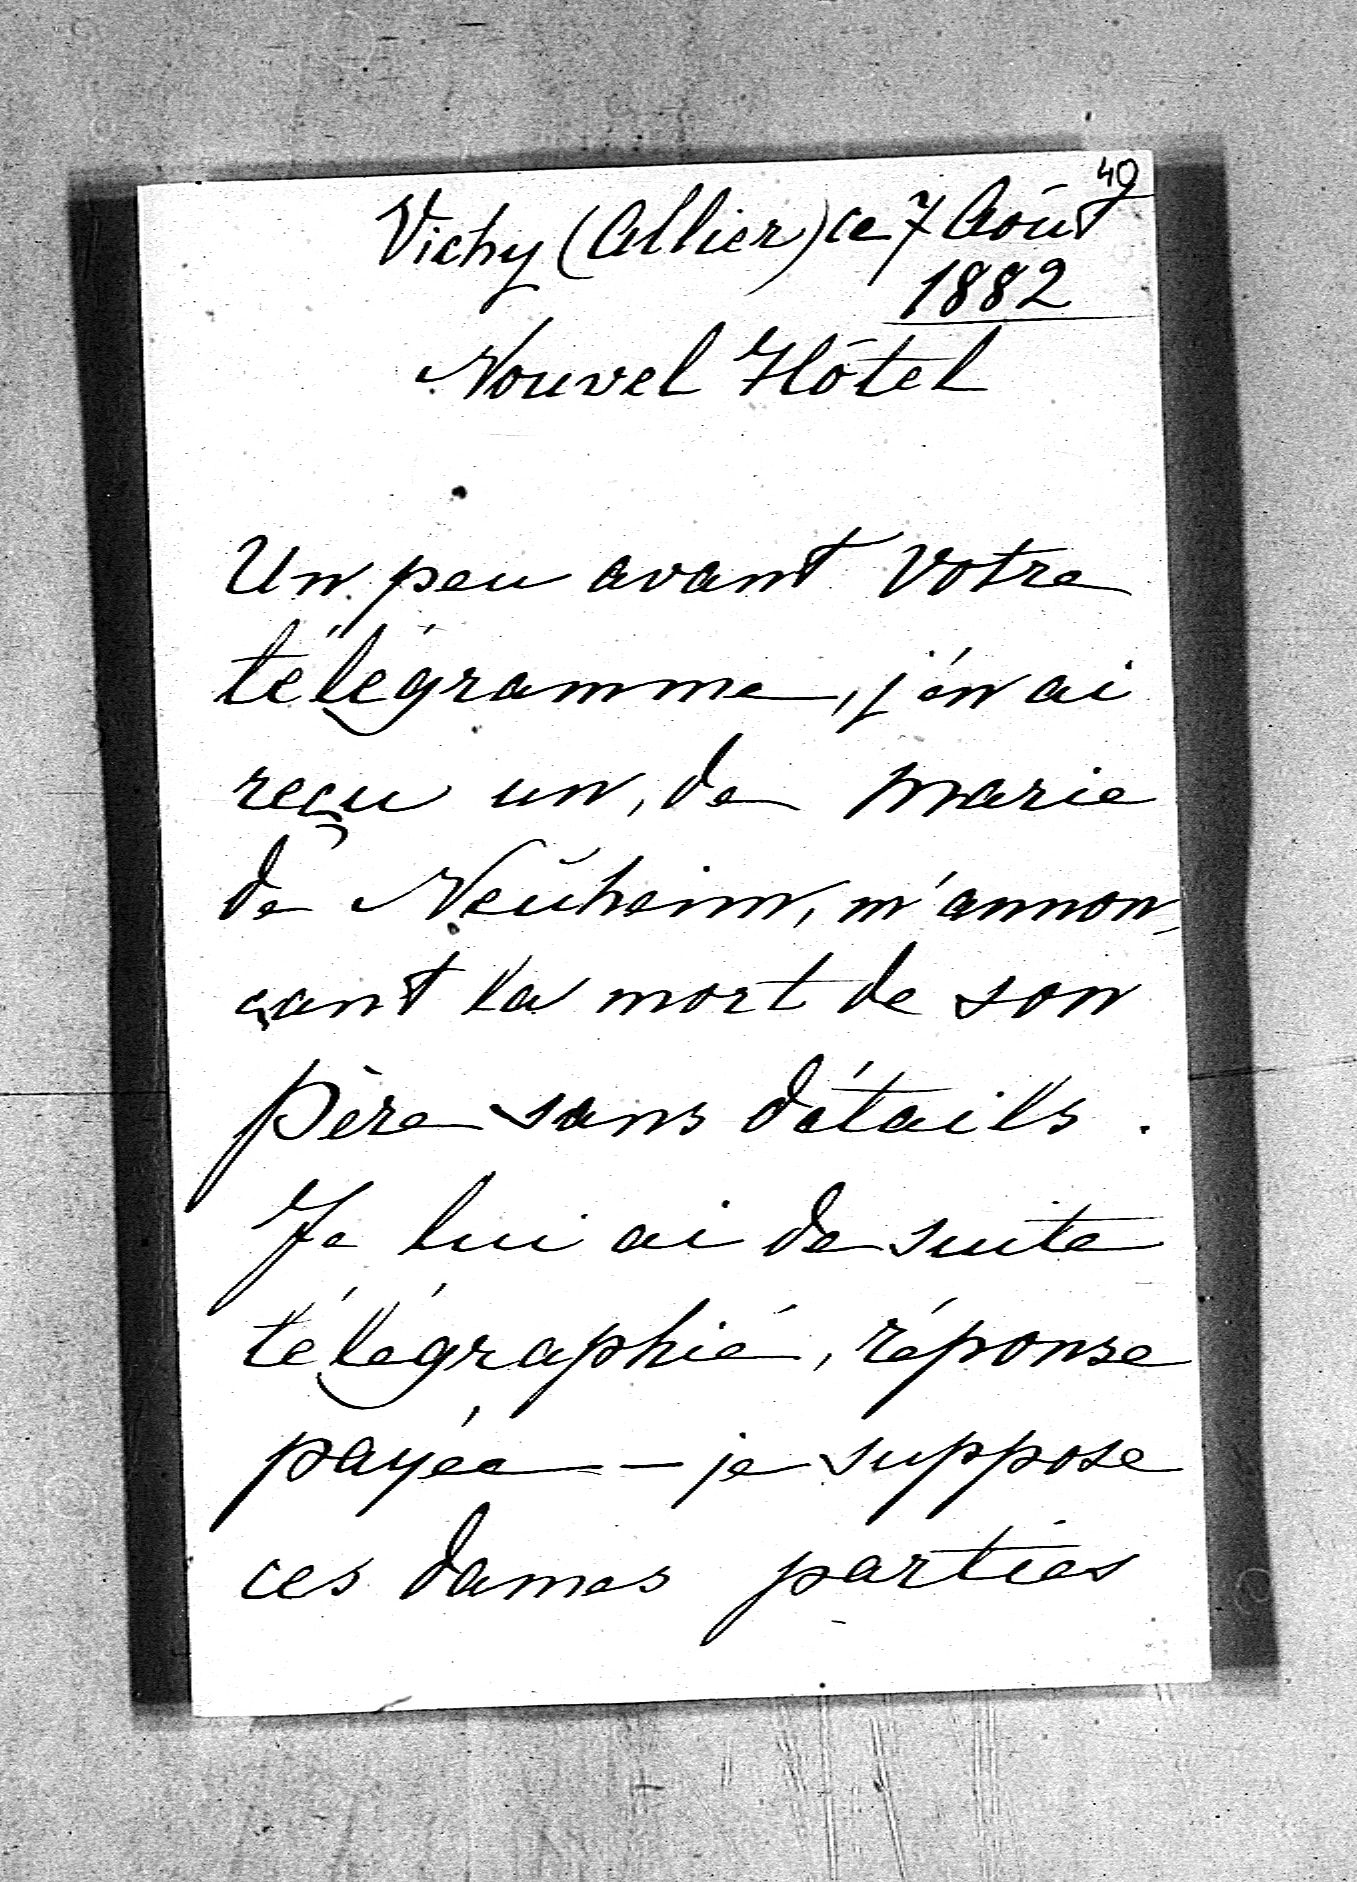 49
Vichy (Allier) ce 7 Août
1882
Nouvel Hôtel
Un peu avant votre
télégramme, j'én ai
reçu un, de Marie
de Neŭheim, m'annon-
çant la mort de son
Père sans détails.
Je lui ai de suite
télégraphié, réponse
payée — je suppose
ces dames parties